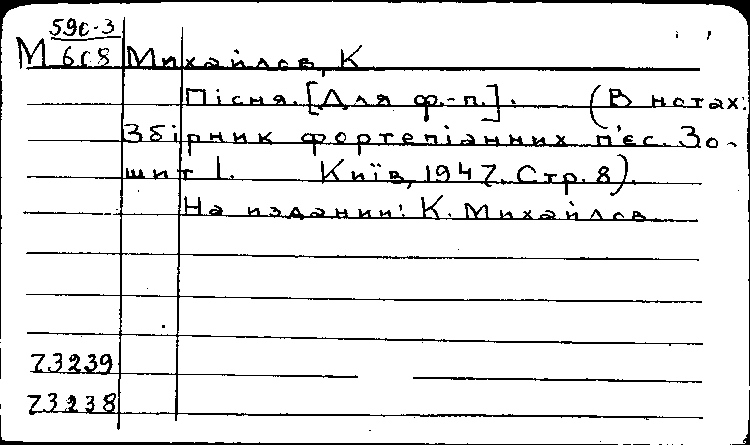 59c-3
М 608 Михайлов, К
Пісня. [Для ф.-п.]. (В нотах:
Збірник фортепіанних п'єс. Зо-
шит 1. Київ, 1947. Стр. 8).
На издании: К. Михайлов
73239
73238